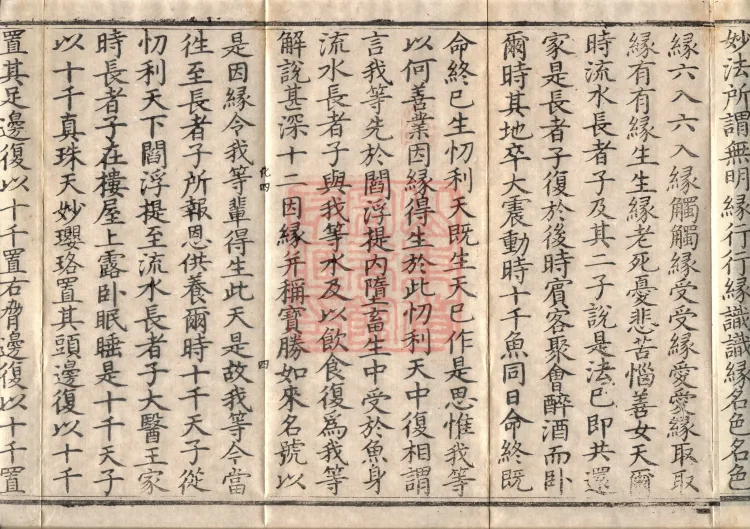 妙法所謂無明緣行行緣識識緣名色名色
緣六入六入緣觸觸緣受受緣愛愛緣取取
緣有有緣生生緣老死憂悲苦惱善女天爾
時流水長者子及其二子說是法已即共還
家是長者子復於後時賓客聚會醉酒而臥
爾時其地卒大震動時十千魚同日命終既
命終已生忉利天既生天已作是思惟我等
以何善業因緣得生於此忉利天中復相謂
言我等先於閻浮提內墮畜生中受於魚身
流水長者子與我等水及以飲食復為我等
解說甚深十二因緣并稱寶勝如來名號以
四
是因緣令我等輩得生此天是故我等今當
往至長者子所報恩供養爾時十千天子從
忉利天下閻浮提至流水長者子大醫王家
時長者子在樓屋上露臥眠睡是十千天子
以十千真珠天妙瓔珞置其頭邊復以十千
置其足邊復以十千置右脅邊復以十千置